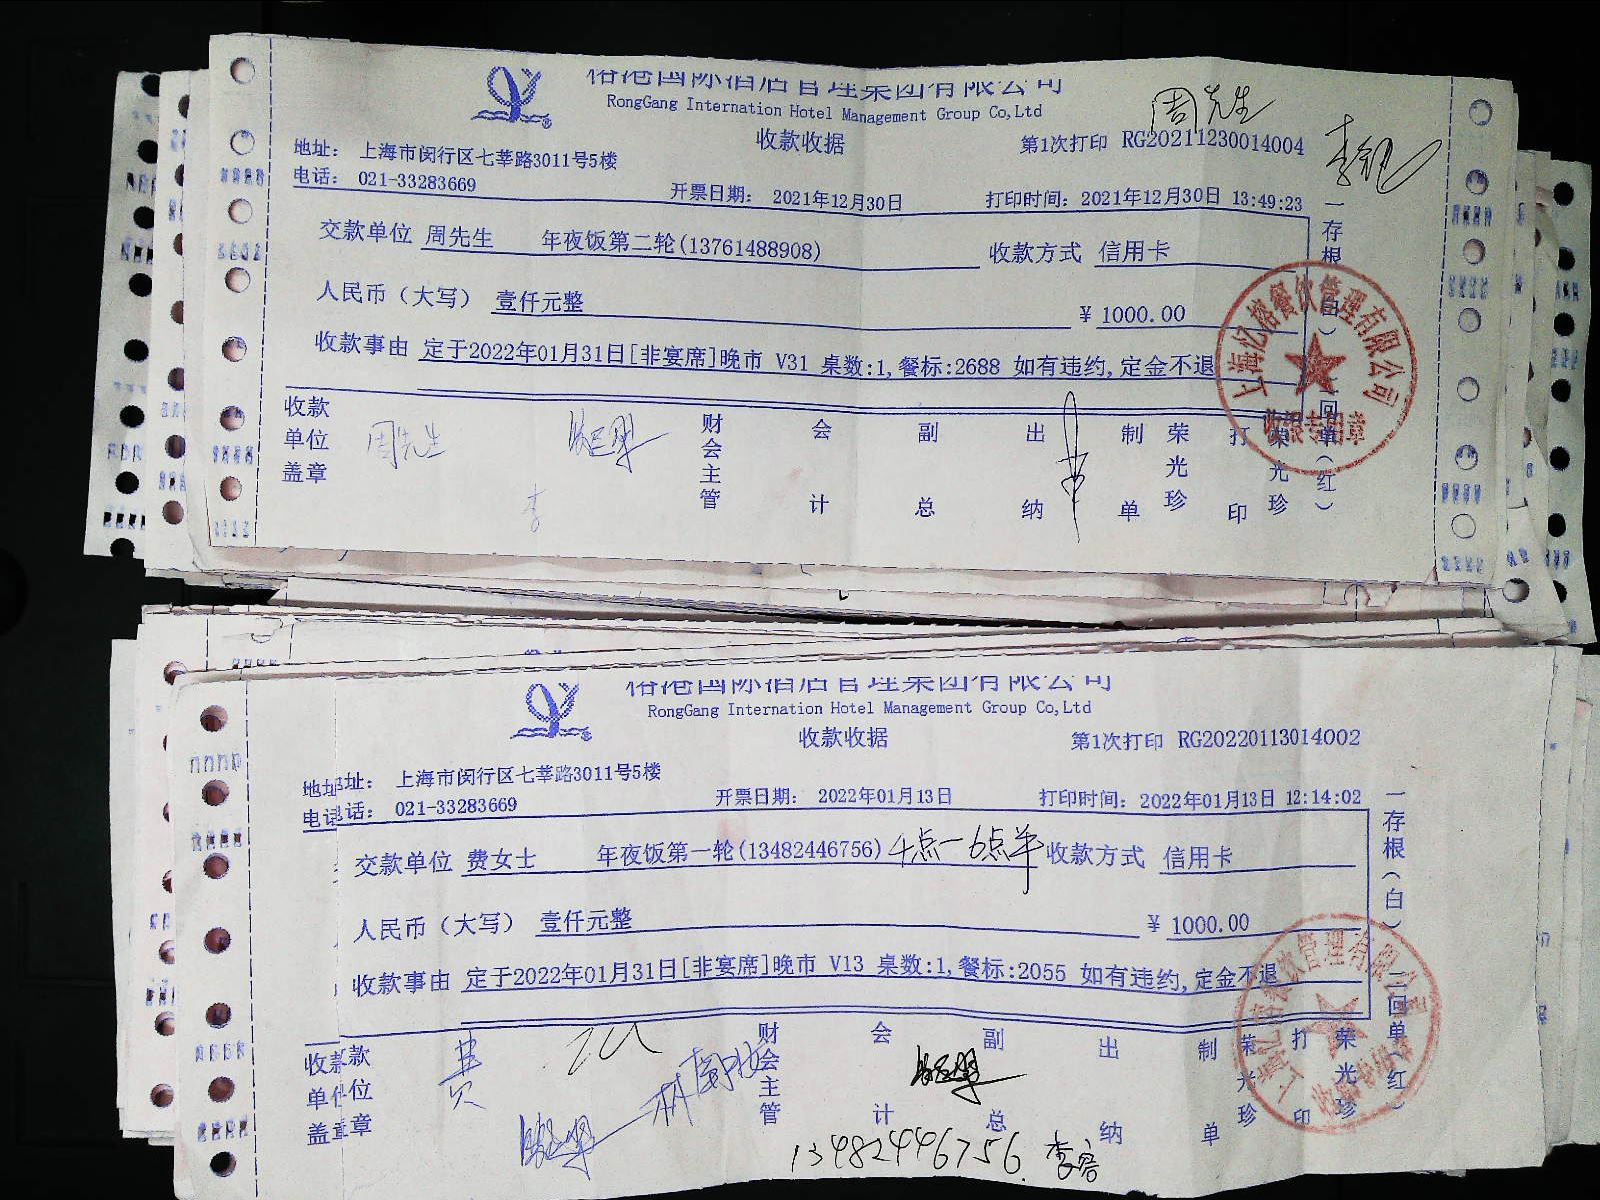 榕港国际酒店管理集团有限公司
RongGang Internation Hotel Management Group Co,Ltd
收款收据
第1次打印 RG20211230014004
周先生
地址: 上海市闵行区七莘路3011号5楼
电话: 021-33283669
开票日期: 2021年12月30日
打印时间: 2021年12月30日 13:49:23
交款单位 周先生 年夜饭第二轮(13761488908) 收款方式 信用卡
人民币（大写） 壹仟元整 ¥ 1000.00
收款事由 定于2022年01月31日[非宴席]晚市 V31 桌数:1,餐标:2688 如有违约,定金不退
收款单位盖章 周先生 财会主管 会计 副总 出纳 制单 荣光珍 打印 荣光珍
李
一存根(白) 二回单(红)
上海亿榕餐饮管理有限公司
收银专用章
榕港国际酒店管理集团有限公司
RongGang Internation Hotel Management Group Co,Ltd
收款收据
第1次打印 RG20220113014002
地址: 上海市闵行区七莘路3011号5楼
电话: 021-33283669
开票日期: 2022年01月13日
打印时间: 2022年01月13日 12:14:02
交款单位 费女士 年夜饭第一轮(13482446756) 4点-6点半 收款方式 信用卡
人民币（大写） 壹仟元整 ¥ 1000.00
收款事由 定于2022年01月31日[非宴席]晚市 V13 桌数:1,餐标:2055 如有违约,定金不退
收款单位盖章 财会主管 会计 副总 出纳 制单 荣光珍 打印 荣光珍
13482446756
一存根(白) 二回单(红)